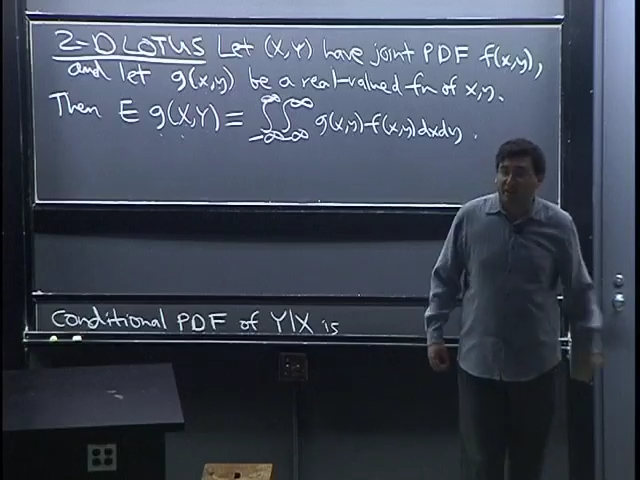 2-D LOTUS Let (X,Y) have joint PDF f(x,y),
and let g(x,y) be a real-valued fn of x,y.
Then E g(X,Y) = ∫_{-∞}^{∞} ∫_{-∞}^{∞} g(x,y) f(x,y) dx dy.
Conditional PDF of Y|X is